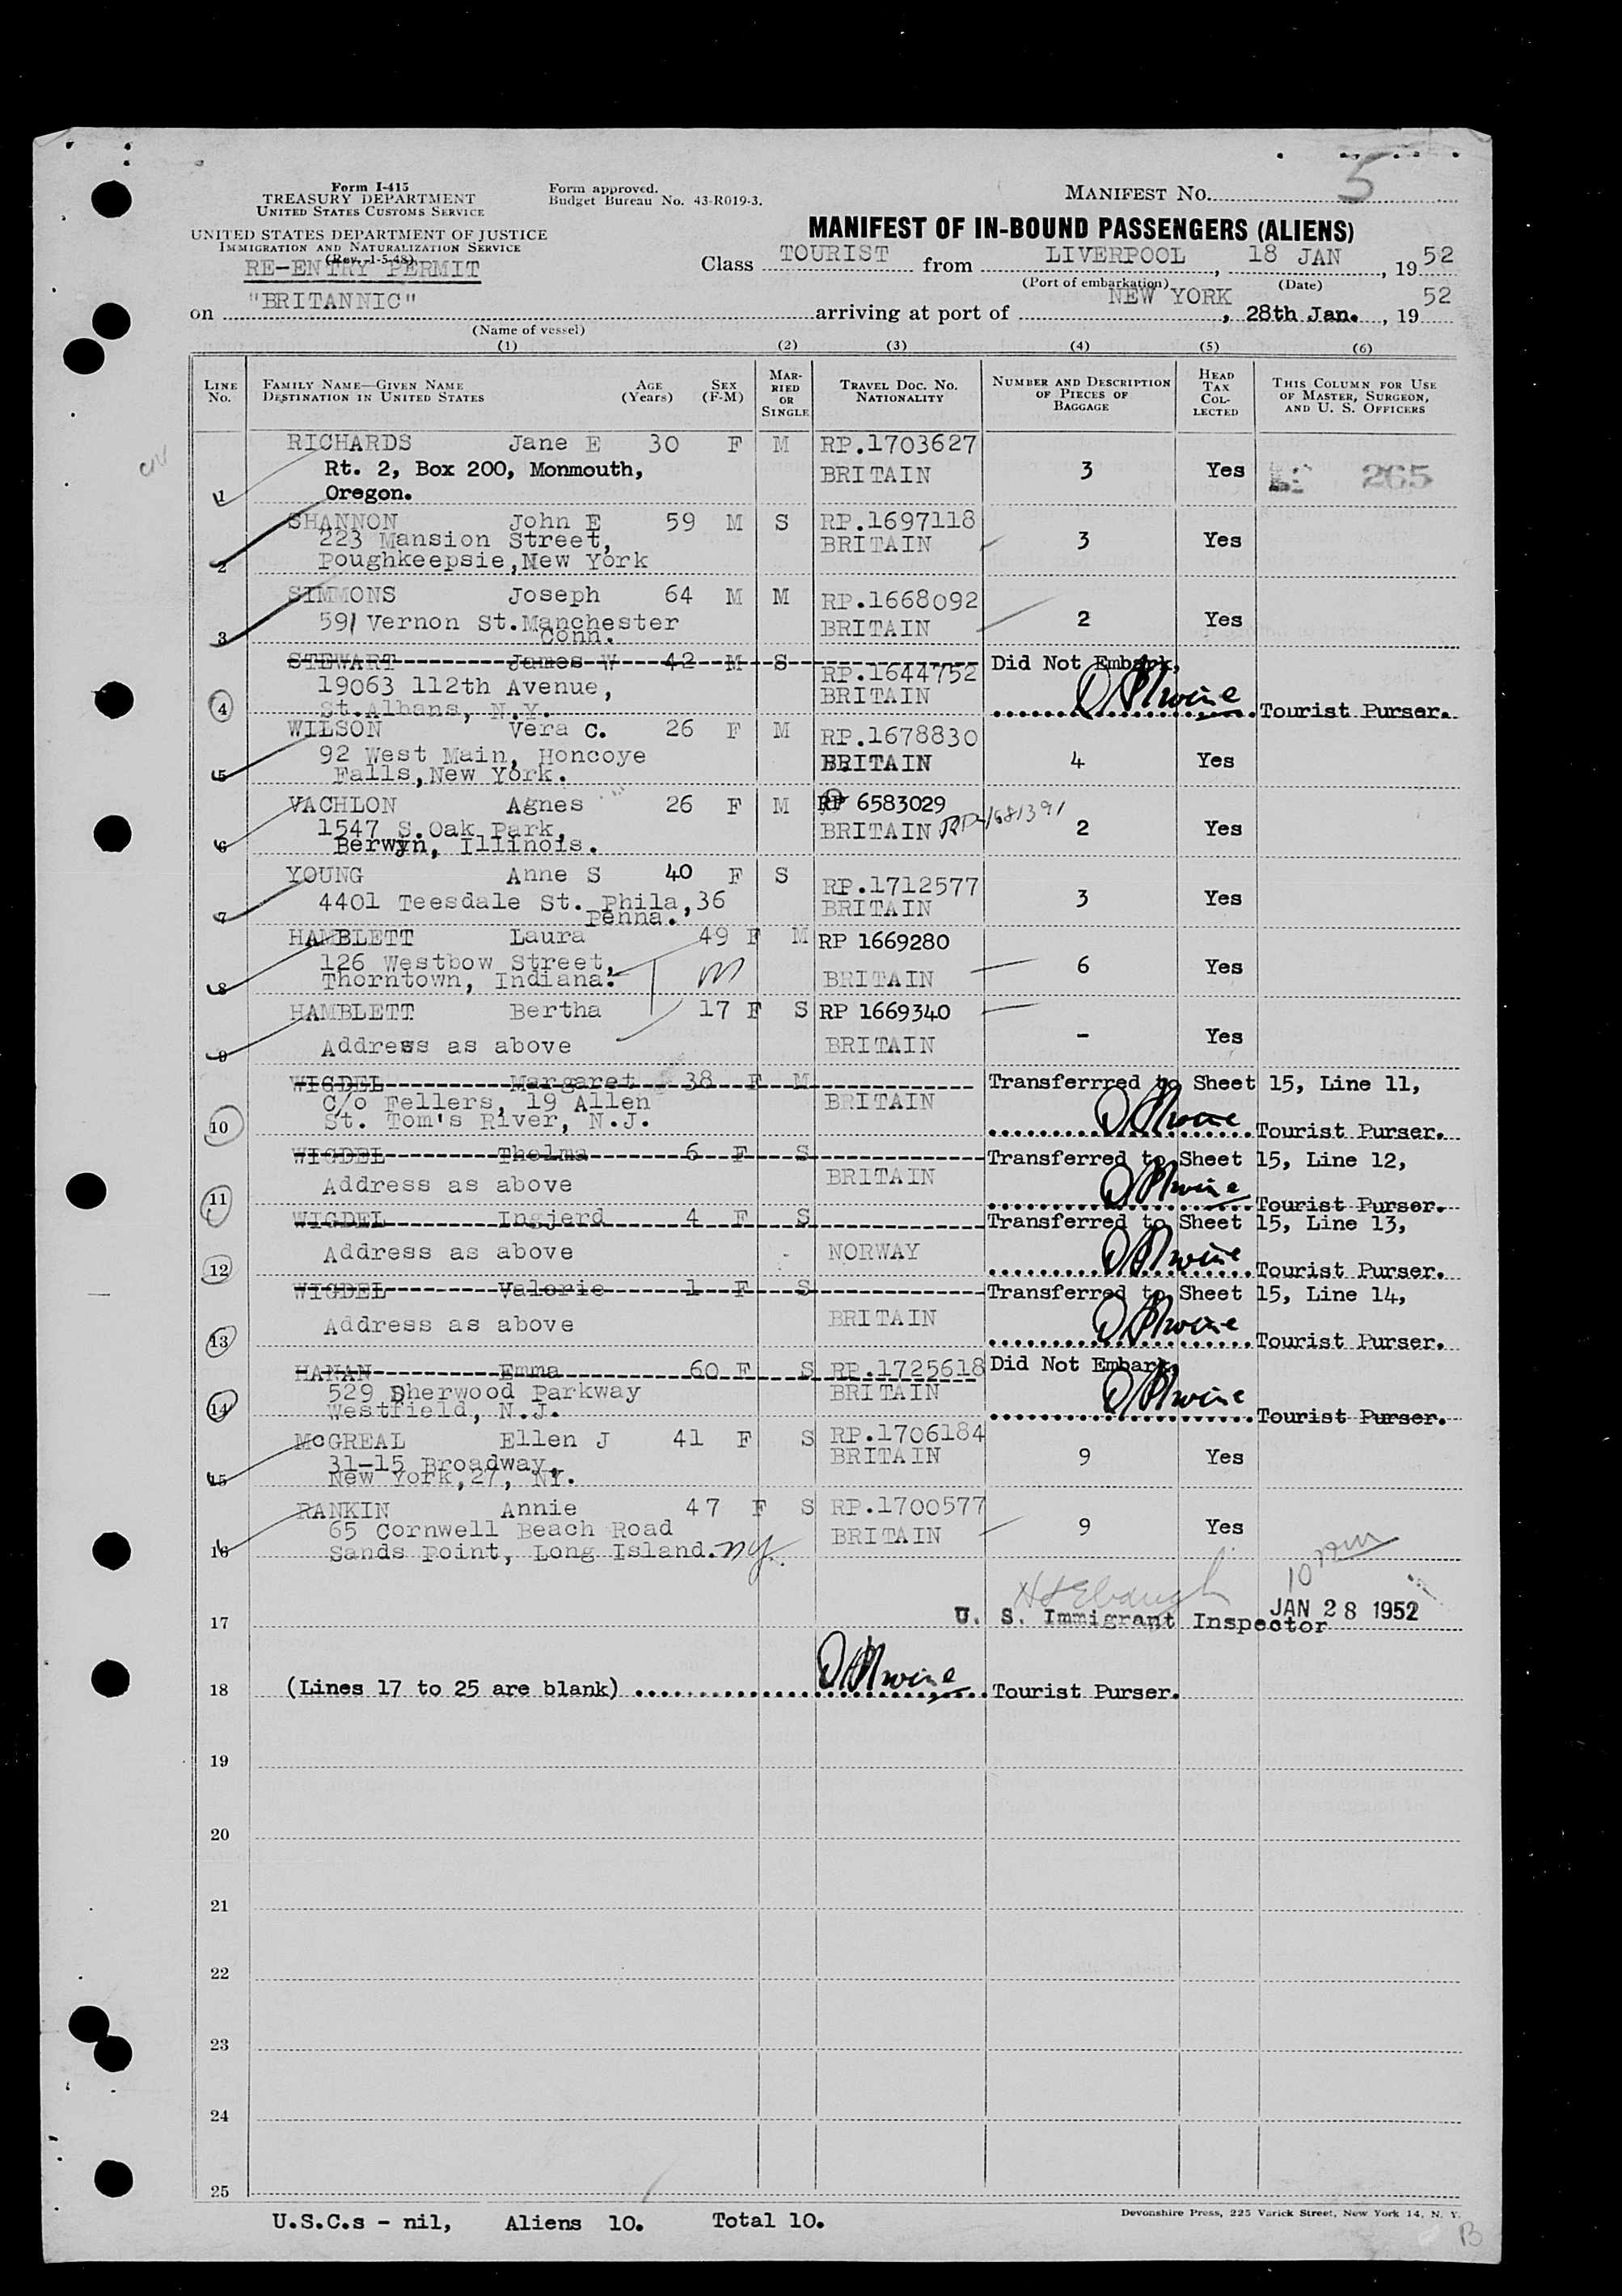 Form I-415
TREASURY DEPARTMENT
UNITED STATES CUSTOMS SERVICE
UNITED STATES DEPARTMENT OF JUSTICE
IMMIGRATION AND NATURALIZATION SERVICE
(Rev. 1-5-48)
RE-ENTRY PERMIT
Form approved.
Budget Bureau No. 43-R019-3.
MANIFEST NO. 5
MANIFEST OF IN-BOUND PASSENGERS (ALIENS)
Class TOURIST from LIVERPOOL, 18 JAN, 1952
(Port of embarkation) (Date)
on "BRITANNIC" arriving at port of NEW YORK, 28th Jan., 1952
(Name of vessel)
(1) (2) (3) (4) (5) (6)
LINE NO. FAMILY NAME—GIVEN NAME DESTINATION IN UNITED STATES AGE (Years) SEX (F-M) MARRIED OR SINGLE TRAVEL DOC. NO. NATIONALITY NUMBER AND DESCRIPTION OF PIECES OF BAGGAGE HEAD TAX COLLECTED THIS COLUMN FOR USE OF MASTER, SURGEON, AND U. S. OFFICERS
RICHARDS Jane E 30 F M RP.1703627
Rt. 2, Box 200, Monmouth, BRITAIN 3 Yes 265
1 Oregon.
SHANNON John E 59 M S RP.1697118
223 Mansion Street, BRITAIN 3 Yes
2 Poughkeepsie,New York
SIMMONS Joseph 64 M M RP.1668092
591 Vernon St.Manchester BRITAIN 2 Yes
3 Conn.
STEWART James W 42 M S RP.1644752 Did Not Embark,
19063 112th Avenue, BRITAIN
4 St.Albans, N.Y. Tourist Purser.
WILSON Vera C. 26 F M RP.1678830
92 West Main, Honcoye BRITAIN 4 Yes
5 Falls,New York.
VACHLON Agnes 26 F M RP 6583029
1547 S.Oak Park, BRITAIN RP-1681391 2 Yes
6 Berwyn, Illinois.
YOUNG Anne S 40 F S RP.1712577
4401 Teesdale St. Phila,36 BRITAIN 3 Yes
7 Penna.
HAMBLETT Laura 49 F M RP 1669280
126 Westbow Street, 6 Yes
8 Thorntown, Indiana. BRITAIN
HAMBLETT Bertha 17 F S RP 1669340
9 Address as above BRITAIN - Yes
WIGDEL Margaret 38 F M Transferrred to Sheet 15, Line 11,
C/o Fellers, 19 Allen BRITAIN
10 St. Tom's River, N.J. Tourist Purser.
WIGDEL Thelma 6 F S Transferred to Sheet 15, Line 12,
11 Address as above BRITAIN Tourist Purser.
WIGDEL Ingjerd 4 F S Transferred to Sheet 15, Line 13,
12 Address as above NORWAY Tourist Purser.
WIGDEL Valerie 1 F S Transferred to Sheet 15, Line 14,
13 Address as above BRITAIN Tourist Purser.
HANAN Emma 60 F S RP.1725618 Did Not Embark,
529 Sherwood Parkway BRITAIN
14 Westfield, N.J. Tourist Purser.
McGREAL Ellen J 41 F S RP.1706184
31-15 Broadway, BRITAIN 9 Yes
15 New York,27, NY.
RANKIN Annie 47 F S RP.1700577
65 Cornwell Beach Road BRITAIN 9 Yes
16 Sands Point, Long Island. NY.
JAN 28 1952
17 U. S. Immigrant Inspector
18 (Lines 17 to 25 are blank) Tourist Purser.
19
20
21
22
23
24
25
U.S.C.s - nil, Aliens 10. Total 10.
Devonshire Press, 225 Varick Street, New York 14, N. Y.
B